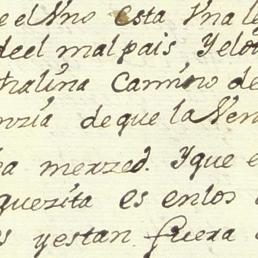 e el Vno esta Vna le
deel mal pais Yelo
Camino de
de que la Ven
merzed. Y que e
querita es enlos
s yestan fuera